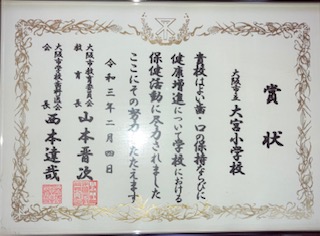 賞状
大阪市立 大宮小学校
貴校はよい歯・口の保持ならびに
健康増進について学校における
保健活動に尽力されました
ここにその努力をたたえます
令和三年二月四日
大阪市教育委員会
教育長 山本晋次
大阪市学校歯科医会
会長 西本達哉